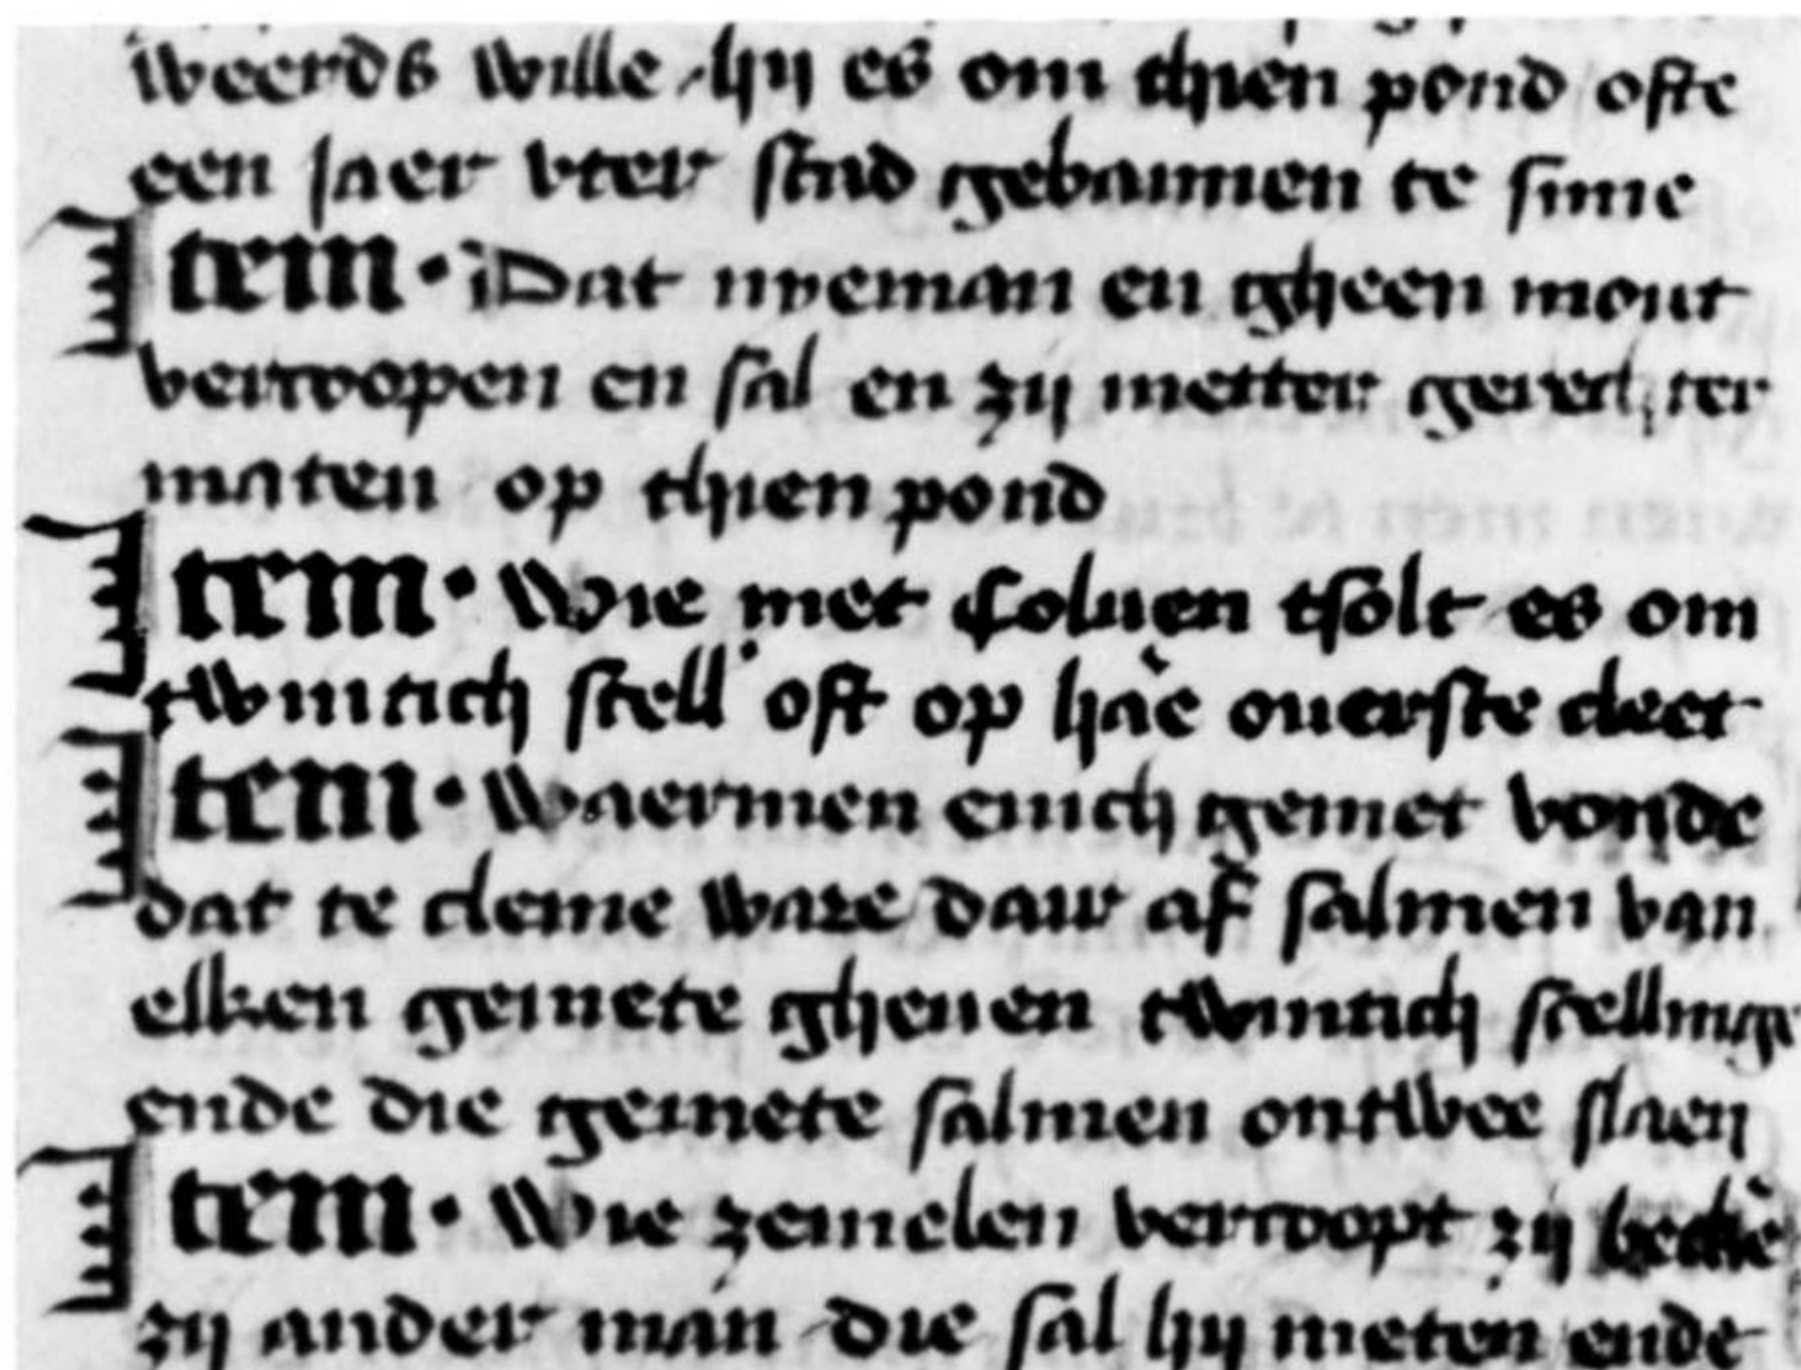 weerds wille hij es om thien pond ofte
een jaer vter stad gebannen te sine
Item · Dat nyeman en gheen mout
vercoopen en sal en zij metter gerechter
maten op thien pond
Item · Wie met coluen tsolt es om
twintich scell' oft op hae ouerste cleet
Item · Waermen enich gemet vonde
dat te cleine ware daer af salmen van
elken gemete gheuen twintich scellinge
ende die gemete salmen ontwee slaen
Item · Wie zemelen vercoopt zij
zij ander man die sal hij meten ende